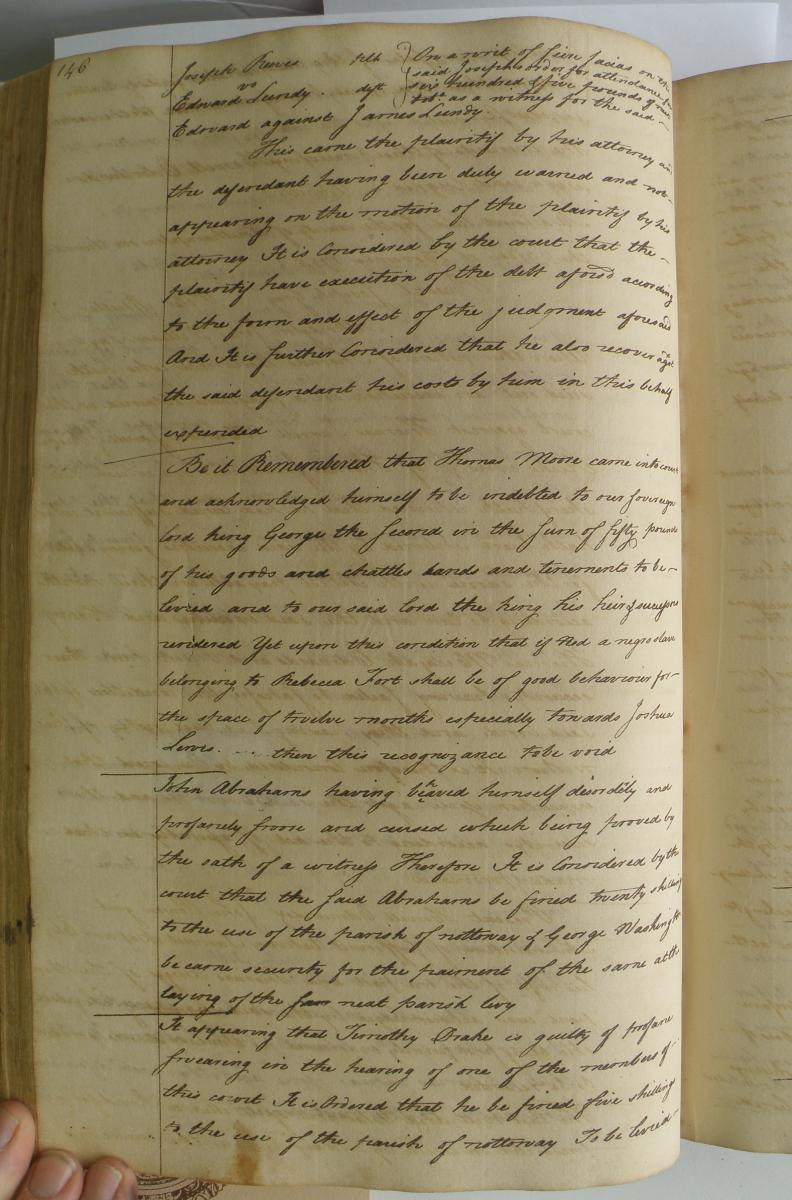 146
Joseph Reeves plt } On a writ of fieri facias on
vs } said Josephs order for attendance
Edward Lundy. deft } six hundred & five pounds of
tob.o as a witness for the said
Edward against James Lundy.
This came the plaintif by his attorney and
the defendant having been duly warned and not
appearing on the motion of the plaintif by his
attorney It is Considered by the court that the
plaintif have execution of the debt afores.d according
to the form and effect of the judgment aforesaid
And It is further Considered that he also recover agst
the said defendant his costs by him in this behalf
expended
Be it Remembered that Thomas Moore came into court
and acknowledged himself to be indebted to our sovereign
lord king George the second in the sum of fifty pounds
of his goods and chattles lands and tenements to be
levied and to our said lord the king his heirs & successors
rendered Yet upon this condition that if Ned a negro slave
belonging to Rebecca Fort shall be of good behaviour for
the space of twelve months especially towards Joshua
.... then this recognizance to be void
John Abrahams having behaved himself disorderly and
profanely swore and cursed which being proved by
the oath of a witness Therefore It is Considered by the
court that the said Abrahams be fined twenty shillings
to the use of the parish of nottoway & George Washington
became security for the paiment of the same at the
laying of the sam next parish levy
It appearing that Timothy Drake is guilty of profane
swearing in the hearing of one of the members of
this court It is Ordered that he be fined five shillings
to the use of the parish of nottoway To be levied